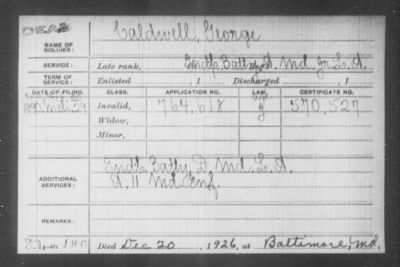 DEAD
Caldwell, George
NAME OF SOLDIER:
SERVICE: Late rank, Md. L. A.
TERM OF SERVICE: Enlisted 1 Discharged 1
DATE OF FILING. CLASS. APPLICATION NO. LAW. CERTIFICATE NO.
1890 Invalid, 764,618 570,527
Widow,
Minor,
ADDITIONAL SERVICES: Batty D Md. L. A.
11 Md. Inf.
REMARKS:
Died Dec 20, 1926, at Baltimore, Md.